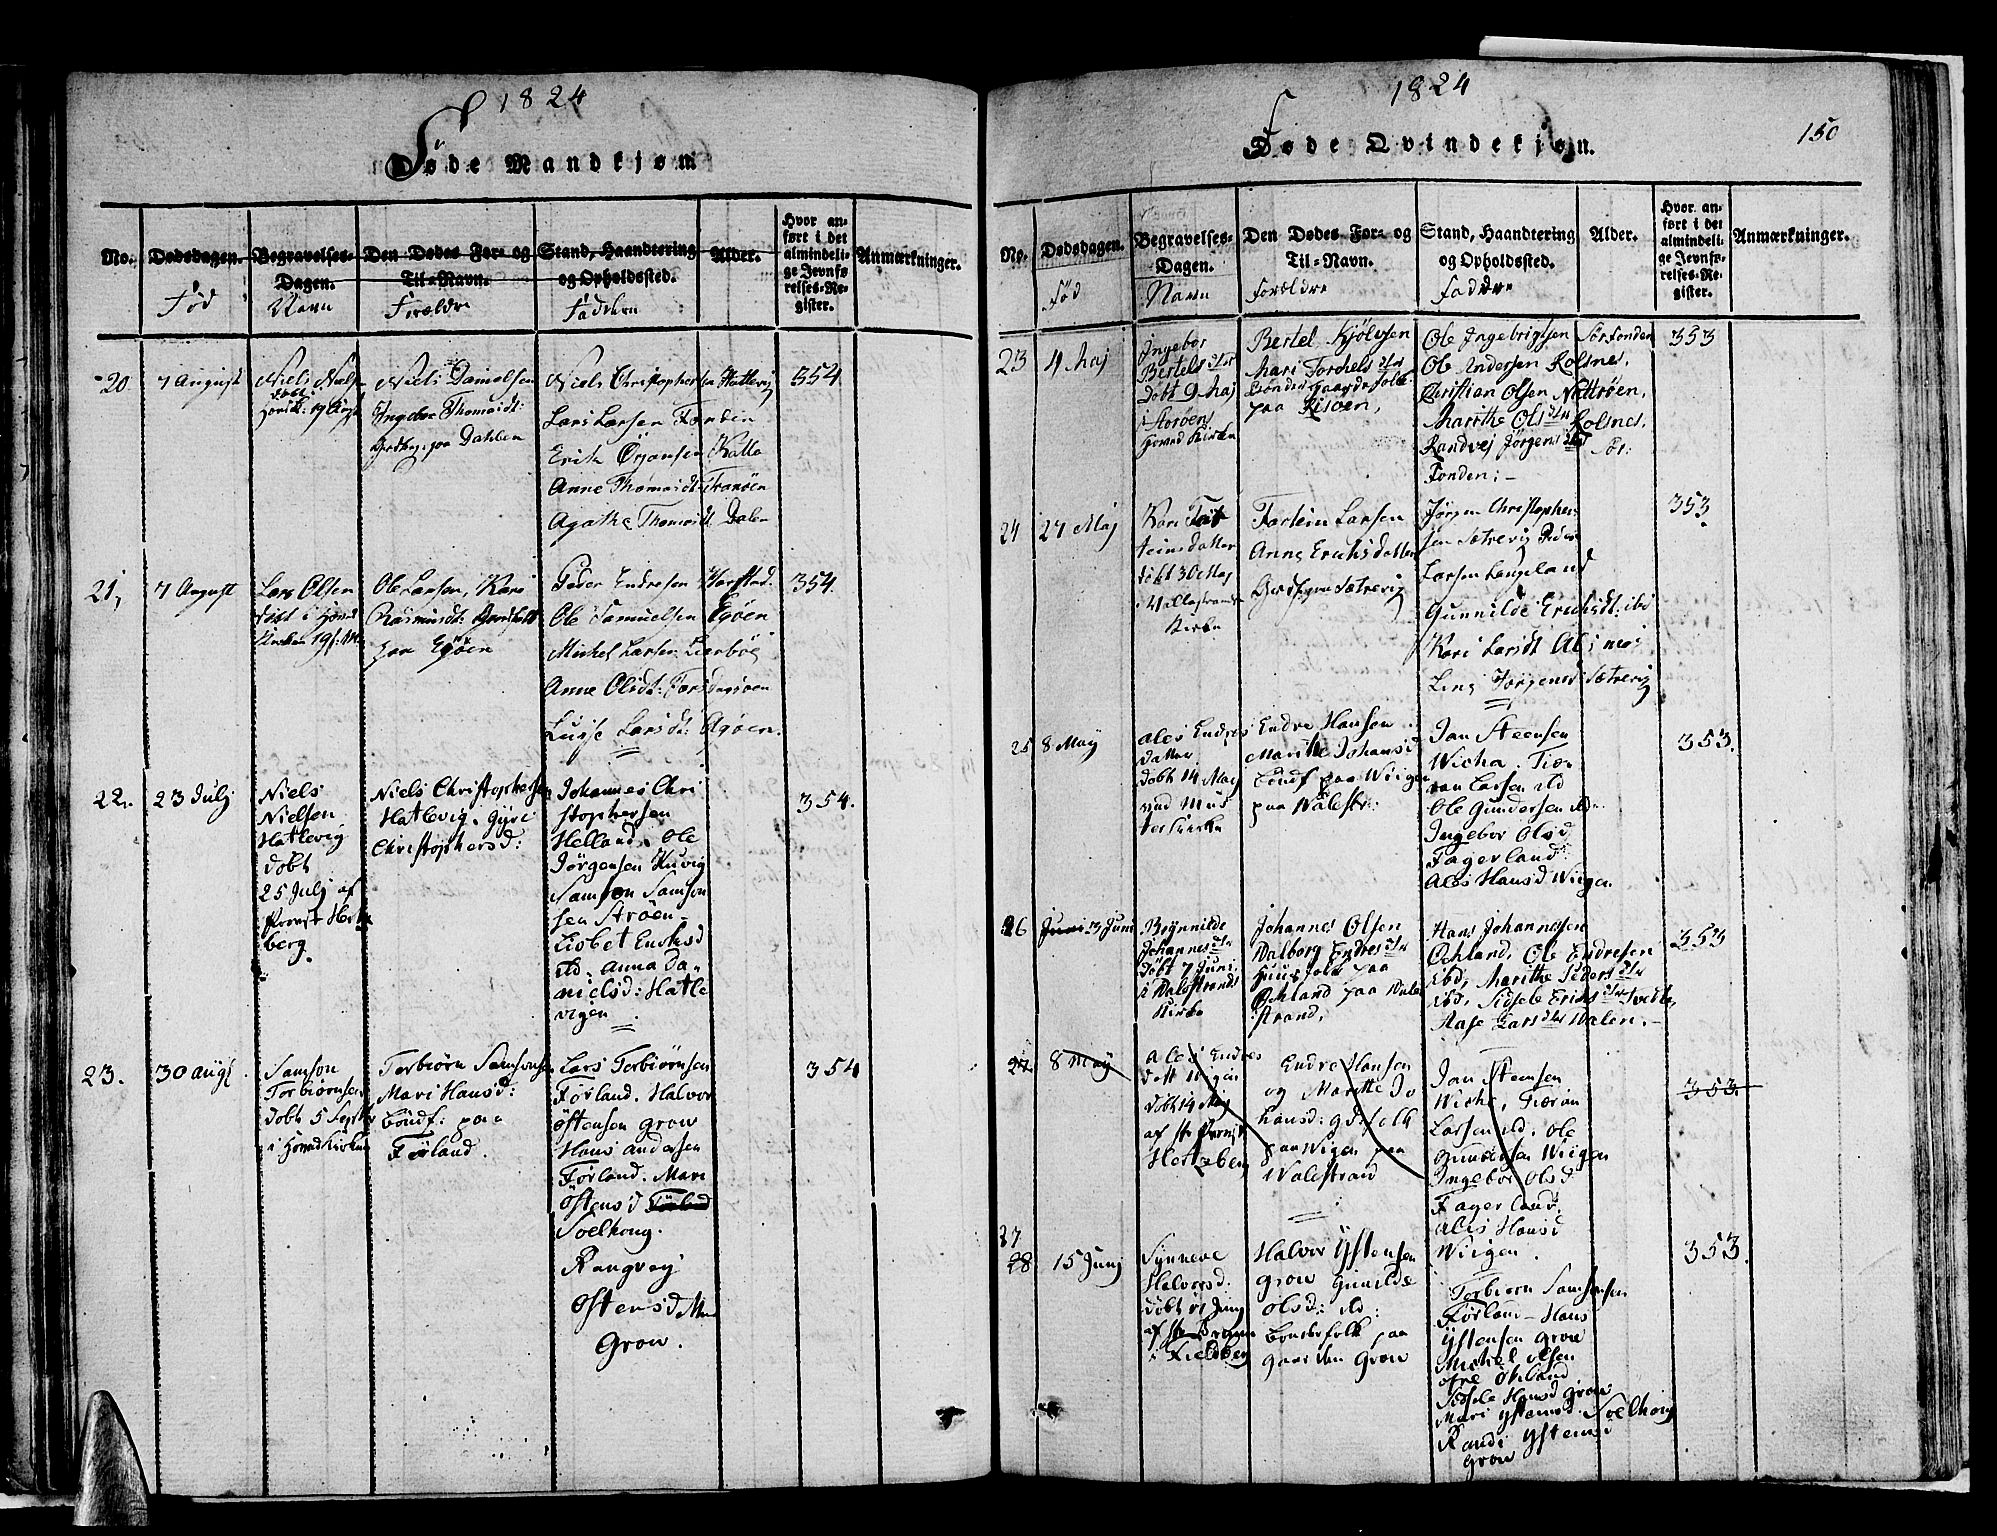 1824
Føde Mandkjøn
No.
Dødsdagen.
Fød
Begravelses-
Dagen.
Navn
Den Dødes For- og
Til-Navn.
Forældre
Stand, Haandtering
og Opholdssted.
Faddere
Alder.
Hvor an-
ført i det
almindeli-
ge Jevnfø
relses-Re-
gister.
Anmærkninger.
20
7 August
Niels Niels
Niels Danielsen
Ingebor Thomasdt:
paa Dahlen
Niels Christophersen Hatlevig
Lars Larsen Fonden
Erik Ørjansen Kalle
Anne Thomasdt: Tranøen
Agathe Thomasdt Dalen
354
21,
7 August
Lars Olsen
døbt i Hornd
Ole Larsen, Kari
Rasmusdt:
paa Egøen
Peder Endresen Harstad.
Ole Samuelsen Egøen
Michel Larsen Lierbøe
Anne Olsdt:
Larsdt: Agøen.
354.
22.
23 Julj
Niels
Nielsen
Hatlevig
døbt
25 Julj af
Provst Hertz
berg.
Niels Christophersen
Hatlevig. Gyri
Christophersd:
Johannes Chri
stophersen
Helland. Ole
Jørgensen Huvig
Samson Samson
sen Strøen-
Lisbet Enoksd
ibd. Anna Da-
nielsd: Hatle
vigen.
354.
23.
30 augs
Samson
Torbiørnsen
døbt 5 Septbr
i Horndkirken
Torbiørn Samsonsen
Mari Hansd:
bøndf: paa
Førland.
Lars Torbiørnsen
Førland. Halvor
Østensen Grow
Hans Andersen
Førland. Mari
Østensd Førland
Soelhoug.
Rangvey
Østensd
Grow.
354
1824
Føde Qvindekjøn.
150
No.
Dødsdagen.
Fød
Begravelses-
Dagen.
Navn
Den Dødes For- og
Til-Navn.
Forældre
Stand, Haandtering
og Opholdssted.
Faddere
Alder.
Hvor an-
ført i det
almindeli-
ge Jevnfø-
relses-Re-
gister.
Anmærkninger.
23
4 Maj
Ingebor
Bertelsdtr
døbt 9 Maj
i Storøens
Kirke
Bertel Kjølvsen
Mari Torchelsdtr
Bønder gaardsfolk
paa Risøen,
Ole Ingebrigtsen Sør Fonden
Ole Andersen Rolsnes,
Christian Olsen Nøttrøen,
Marithe Olsdtr Rolsnes.
Randvej Jørgensdtr Sør:
Fonden:-
353
24
27 Maj
Kari Tor
teinsdatter
døbt 30 Maj
i Valestrands
Kirke
Tortein Larsen
Anne Erichsdatter
Sætrevig
Jørgen Christopher-
sen Sætrevig Peder
Larsen Langeland
Gunnilde Erichsdt: ibd
Kari Larsdt
Jørgensd Sætrevig
353
25
8 Maÿ
Ales Endres
datter
døbt 14 Maj
ved Mos
ter kirke
Endre Hansen
Marithe Johansd
bøndf paa Wiigen
paa Walestr:
Jan Steensen
Wicha. Tiær
ran Larsen ibd
Ole Gundersen ibd.
Ingebor Olsd
Fagerland:
Ales Hansd Wiigen
353.
26
Juni 3 Juni
Brÿnnilde
Johannesdtr
døbt 7 Juni
i Walestrands
Kirke
Johannes Olsen
Walborg Endresdtr
Huusfolk paa
Øchland paa Wale
strand.
Hans Johannessen
Øchland, Ole Endresen
ibd, Marithe Pedersdtr
ibd, Sidsele Eriksdtr Tvedte,
Aase Larsdtr Walen.-
353
27.
8 Maÿ
Ales Endres
datt Wigen
døbt 14 Maj
af Hr Provst
Hertzberg
Endre Hansen
og Maritte Jo
hansd: gdsfolk
paa Wigen paa
Walestrand
Jan Steensen
Wiche, Tiæran
Larsen ibd. Ole
Gundersen Wiigen
Ingebor Olsd
Fagerland.
Ales Hansd
Wiigen.
353.
27
28
15 Junj
Synneve
Halvorsd.
Halvor Ÿstensen
Grow Gunilde
Olsd: ibd:
bønderfolk paa
gaarden Grow
Torbiørn Samsonsen
Førland - Hans
Ÿstensen Grow
Michel Olsen
øfre Økland
Sidsele Hansd Grow
Mari Ÿstensd. Soelhoug
Randi Ÿstensd
Grow
353.